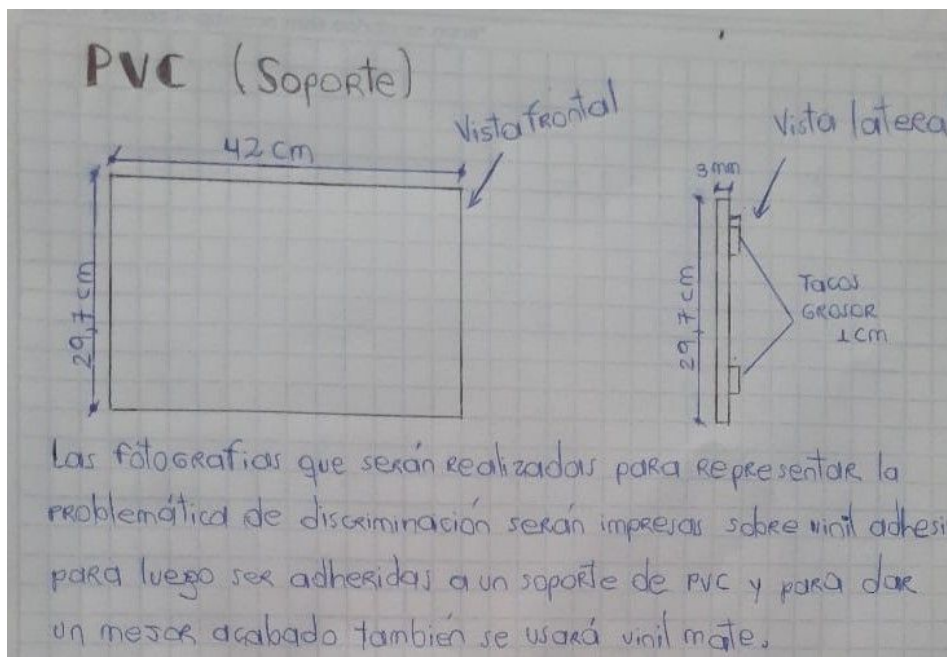 PVC (Soporte)
Vista frontal
Vista latera
42 cm
3 mm
29,7 cm
29,7 cm
Tacos
GROSOR
1 cm
Las fotografias que serán realizadas para representar la
problemática de discriminación serán impresas sobre vinil adhesi
para luego ser adheridas a un soporte de PVC y para dar
un mejor acabado también se usará vinil mate.